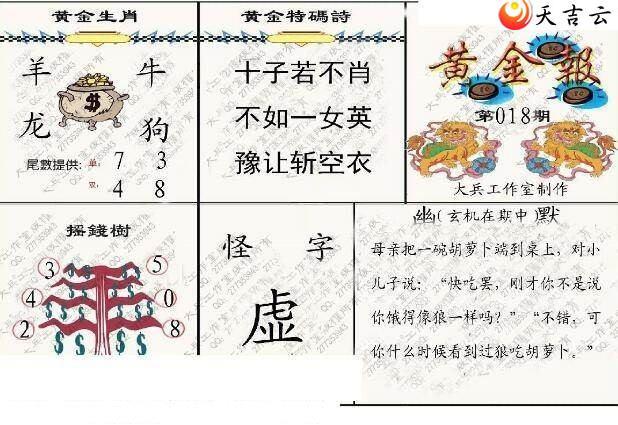 天吉云
黄金生肖
羊 牛
龙 狗
尾數提供: 单: 7 3
双: 4 8
黄金特碼詩
十子若不肖
不如一女英
豫让斩空衣
黄金報
第018期
大兵工作室制作
摇錢樹
3 5
4 0
2 8
怪字
虚
幽(玄机在期中)默
母亲把一碗胡萝卜端到桌上，对小
儿子说：“快吃罢，刚才你不是说
你饿得像狼一样吗？”“不错，可
你什么时候看到过狼吃胡萝卜。”